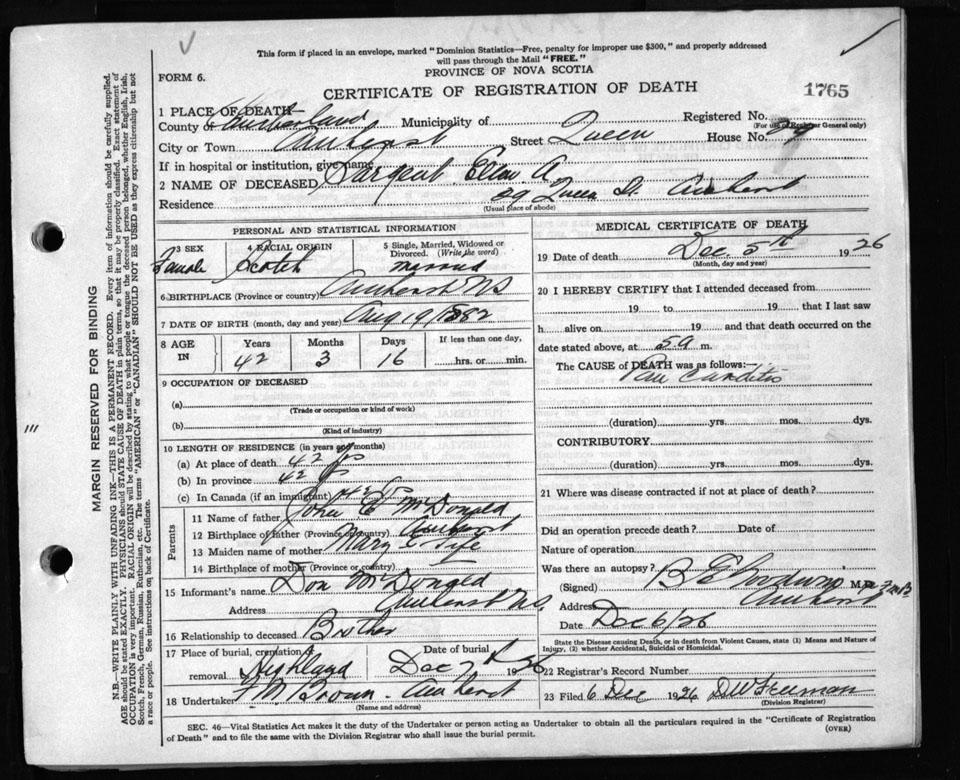 This form if placed in an envelope, marked "Dominion Statistics—Free, penalty for improper use $300," and properly addressed
will pass through the Mail "FREE."
FORM 6.
PROVINCE OF NOVA SCOTIA
CERTIFICATE OF REGISTRATION OF DEATH
1765
1 PLACE OF DEATH
County of Cumberland Municipality of Registered No.
(For use of Registrar General only)
City or Town Amherst Street Queen House No.
If in hospital or institution, give name
2 NAME OF DECEASED Sargent Ellen A.
Residence 29 Queen St Amherst
(Usual place of abode)
PERSONAL AND STATISTICAL INFORMATION
3 SEX 4 RACIAL ORIGIN 5 Single, Married, Widowed or Divorced. (Write the word)
Female Scotch Married
6 BIRTHPLACE (Province or country) Amherst NS
7 DATE OF BIRTH (month, day and year) Aug 19/1882
8 AGE IN Years Months Days If less than one day,
42 3 16 hrs. or min.
9 OCCUPATION OF DECEASED
(a)
(Trade or occupation or kind of work)
(b)
(Kind of industry)
10 LENGTH OF RESIDENCE (in years and months)
(a) At place of death 42 yrs
(b) In province 42 yrs
(c) In Canada (if an immigrant) 42 yrs
Parents
11 Name of father John C McDonald
12 Birthplace of father (Province or country) Amherst
13 Maiden name of mother Mary E Fife
14 Birthplace of mother (Province or country)
15 Informant's name Don McDonald
Address Amherst NS.
16 Relationship to deceased Brother
17 Place of burial, cremation or removal Highland Date of burial Dec 7th 1926
18 Undertaker F M Brown. Amherst
(Name and address)
MEDICAL CERTIFICATE OF DEATH
19 Date of death Dec. 5th 1926
(Month, day and year)
20 I HEREBY CERTIFY that I attended deceased from
19 to 19 that I last saw
h alive on 19 and that death occurred on the
date stated above, at 5 a m.
The CAUSE of DEATH was as follows:
(duration) yrs. mos. dys.
CONTRIBUTORY
(duration) yrs. mos. dys.
21 Where was disease contracted if not at place of death?
Did an operation precede death? Date of
Nature of operation
Was there an autopsy?
(Signed) M.D.
Address Amherst
Date Dec 6/26
State the Disease causing Death, or in death from Violent Causes, state (1) Means and Nature of
Injury, (2) whether Accidental, Suicidal or Homicidal.
22 Registrar's Record Number
23 Filed 6 Dec 1926 D W Freeman
(Division Registrar)
SEC. 46—Vital Statistics Act makes it the duty of the Undertaker or person acting as Undertaker to obtain all the particulars required in the "Certificate of Registration
of Death" and to file the same with the Division Registrar who shall issue the burial permit.
(OVER)
MARGIN RESERVED FOR BINDING
N.B.—WRITE PLAINLY WITH UNFADING INK—THIS IS A PERMANENT RECORD. Every item of information should be carefully supplied.
AGE should be stated EXACTLY. PHYSICIANS should STATE CAUSE OF DEATH in plain terms, so that it may be properly classified. Exact statement of
OCCUPATION is very important. RACIAL ORIGIN will be described by stating to what people or tongue the deceased person belonged, whether English, Irish,
Scotch, French, German, Russian, Ruthenian, etc. The terms "AMERICAN" or "CANADIAN" SHOULD NOT BE USED as they express citizenship but not
a race or people. See instructions on back of Certificate.